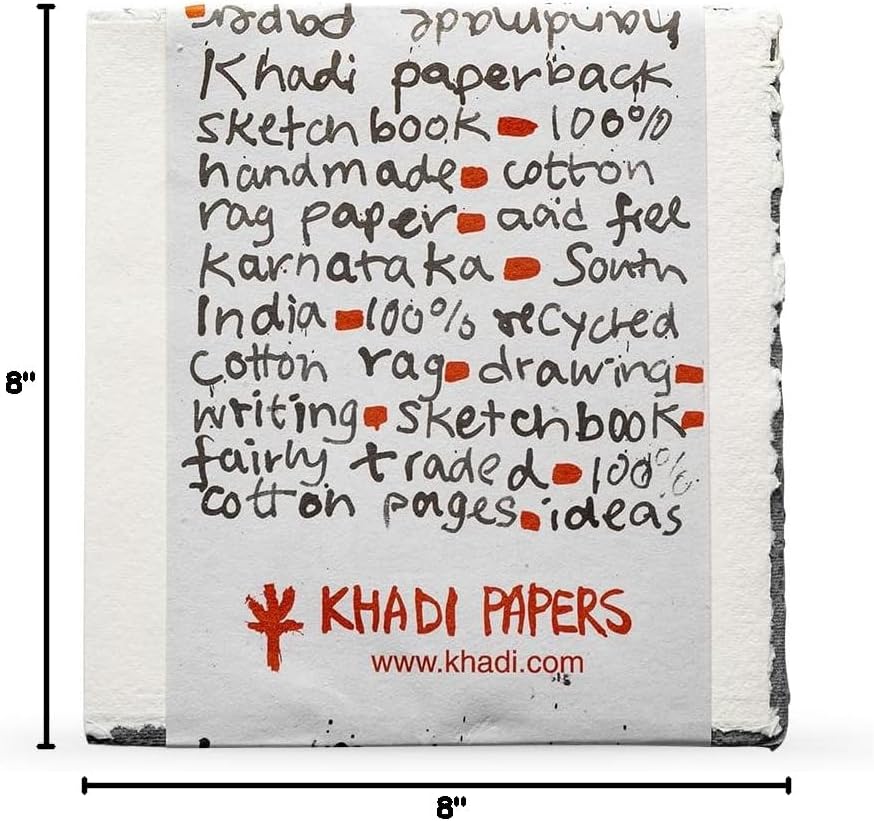 handmade paper
Khadi paperback
sketchbook 100%
handmade cotton
rag paper acid free
Karnataka South
India 100% recycled
cotton rag drawing
writing sketchbook
fairly traded 100%
cotton pages ideas
KHADI PAPERS
www.khadi.com
8"
8"